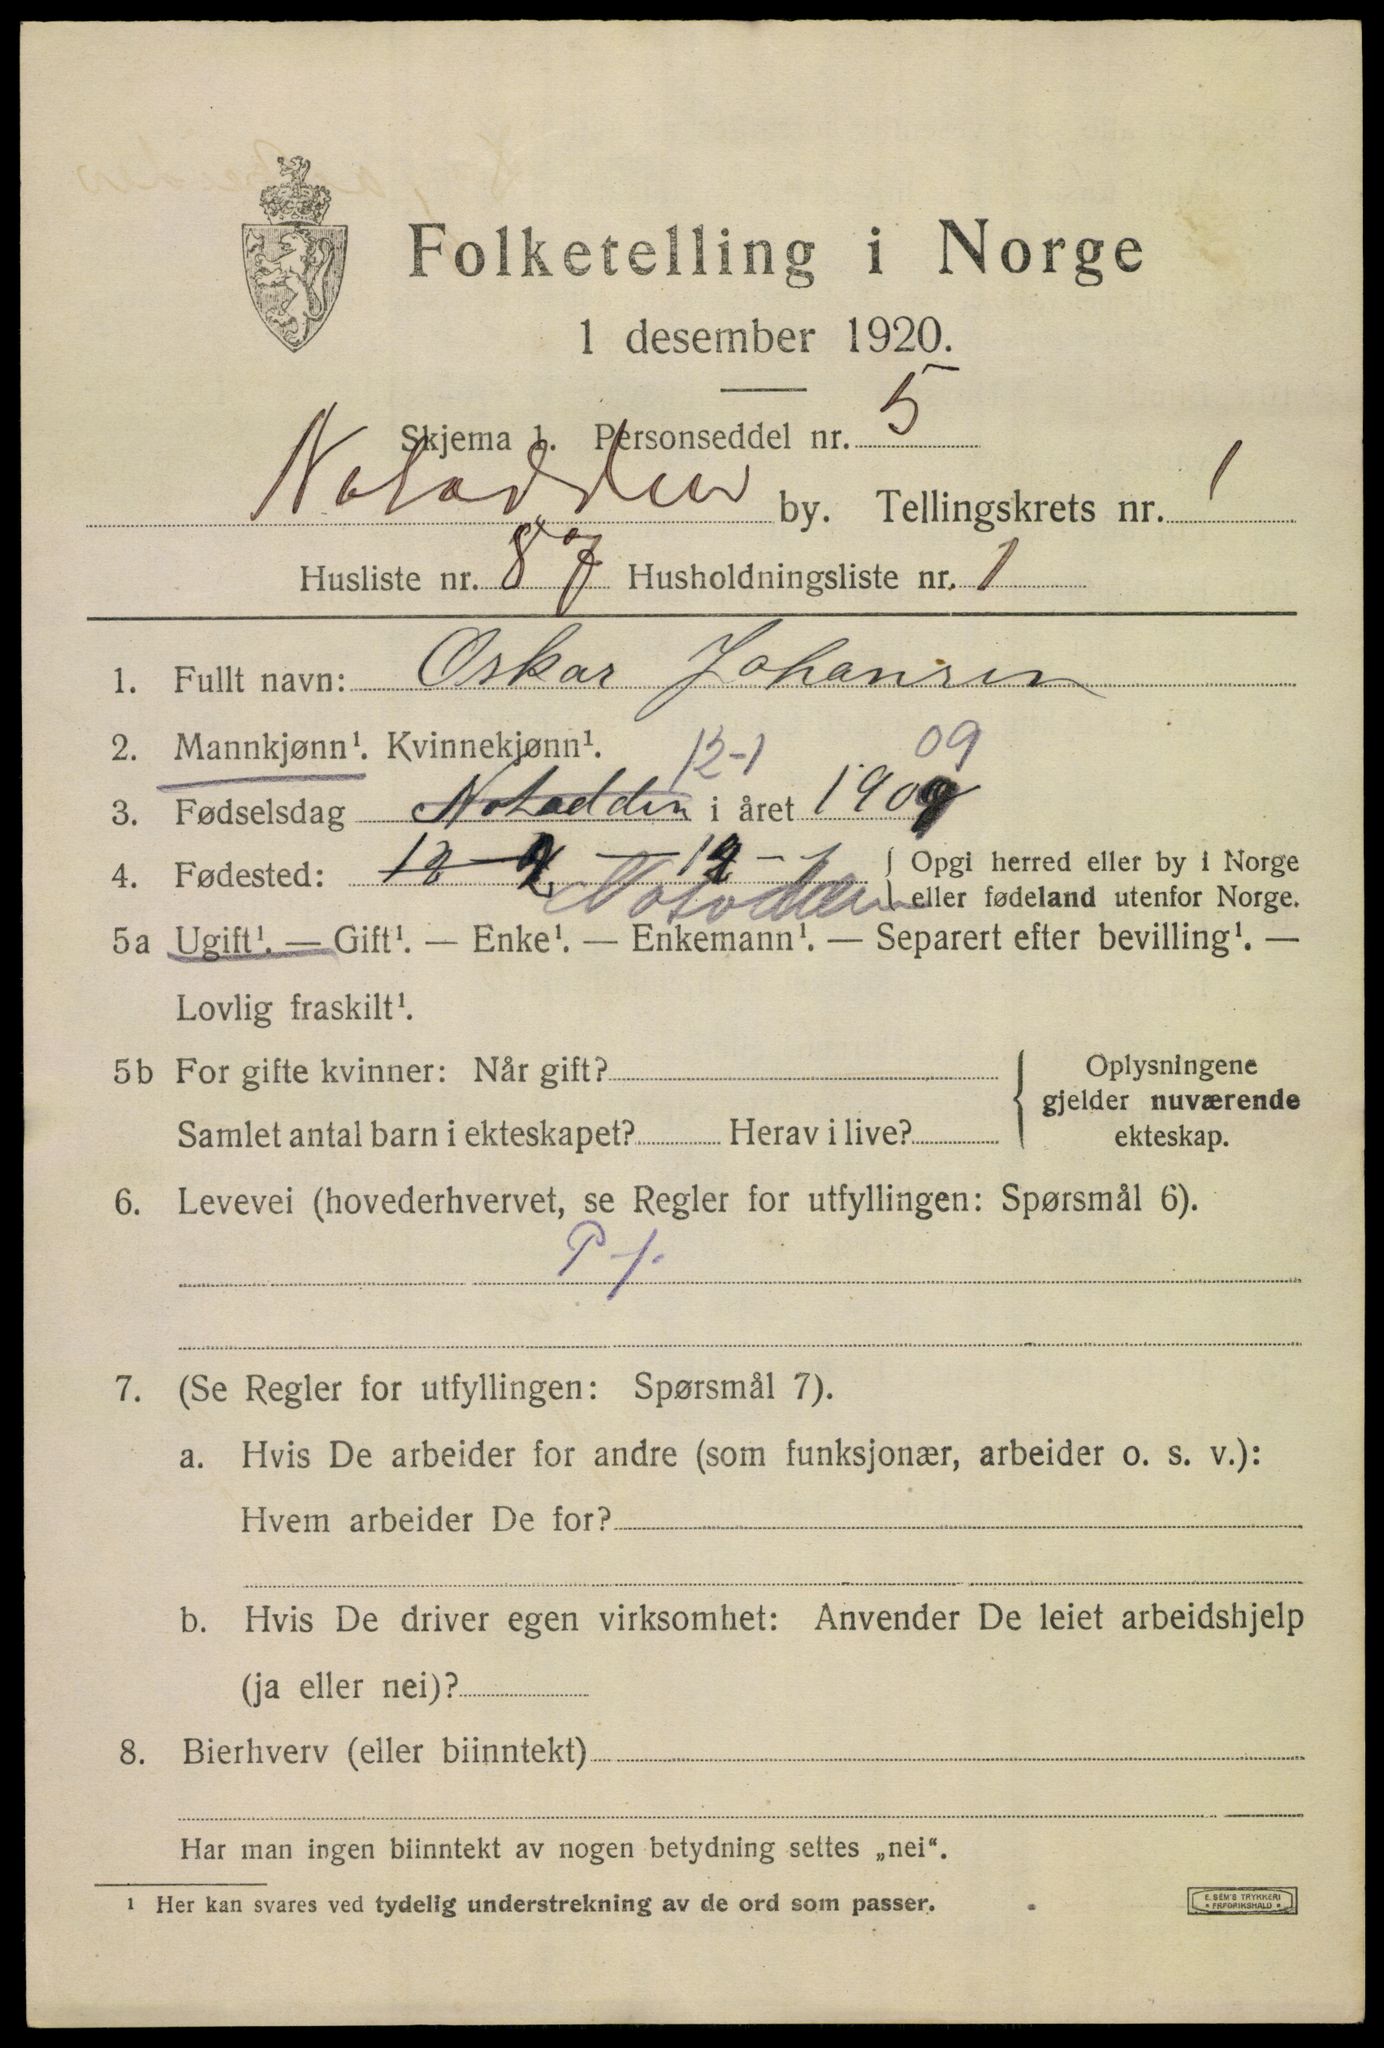 Folketelling i Norge
1 desember 1920.
Skjema 1. Personseddel nr. 5
Notodden by. Tellingskrets nr. 1
Husliste nr. 87 Husholdningsliste nr. 1
1. Fullt navn: Oskar Johansen
2. Mannkjønn¹. Kvinnekjønn¹. 12-1 09
3. Fødselsdag Notodden i året 1909
4. Fødested: Notodden { Opgi herred eller by i Norge
eller fødeland utenfor Norge.
5a Ugift¹. — Gift¹. — Enke¹. — Enkemann¹. — Separert efter bevilling¹. —
Lovlig fraskilt¹.
5b For gifte kvinner: Når gift? Oplysningene
gjelder nuværende
Samlet antal barn i ekteskapet? Herav i live? ekteskap.
6. Levevei (hovederhvervet, se Regler for utfyllingen: Spørsmål 6).
7. (Se Regler for utfyllingen: Spørsmål 7).
a. Hvis De arbeider for andre (som funksjonær, arbeider o. s. v.):
Hvem arbeider De for?
b. Hvis De driver egen virksomhet: Anvender De leiet arbeidshjelp
(ja eller nei)?
8. Bierhverv (eller biinntekt)
Har man ingen biinntekt av nogen betydning settes „nei“.
¹ Her kan svares ved tydelig understrekning av de ord som passer.
E. SEM'S TRYKKERI
* FREDRIKSHALD *